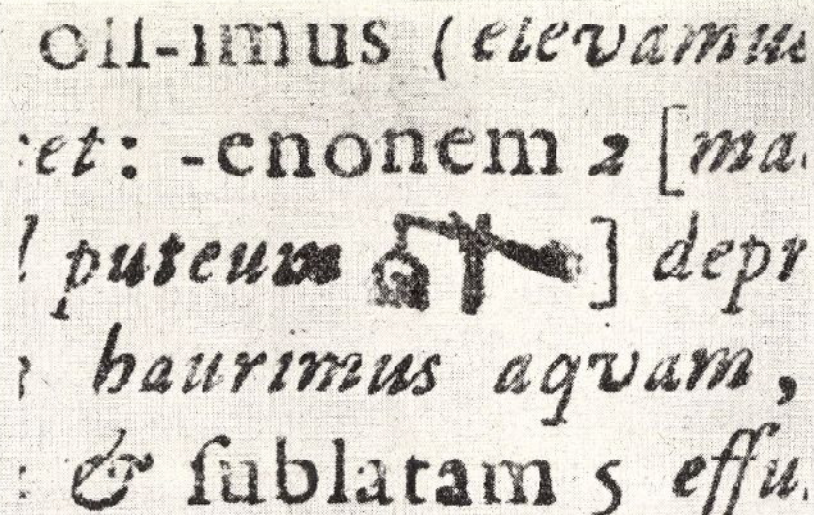 oll-imus (elevamus
et: -enonem 2 [ma
puteum ] depr
haurimus aqvam,
& ſublatam 5 effu